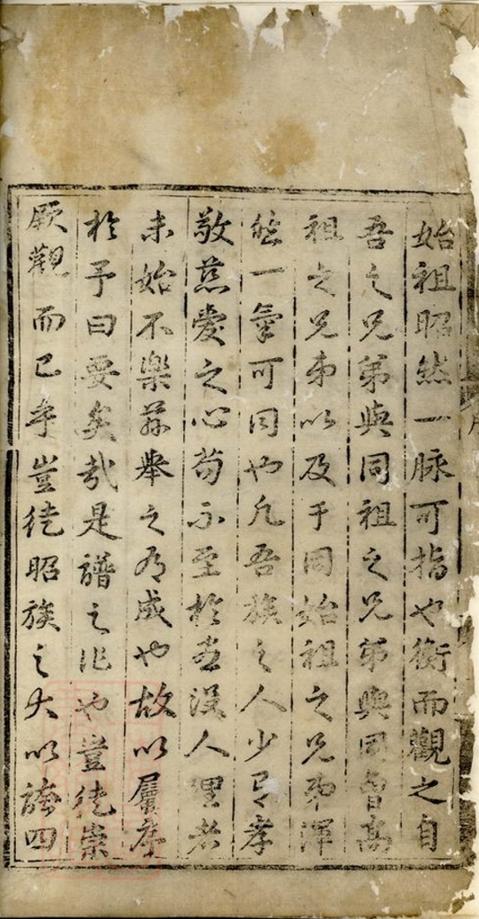 始祖昭然一脉可指也衡而觀之自
吾之兄弟與同祖之兄弟與同曾高
祖之兄弟以及于同始祖之兄弟渾
然一氣可同也凡吾族之人少有孝
敬慈愛之心苟不至於盡没人理者
未始不樂茲舉之有成也故以屬序
於予曰要矣哉是譜之作也豈徒崇
厥觀而已乎豈徒昭族之大以誇四